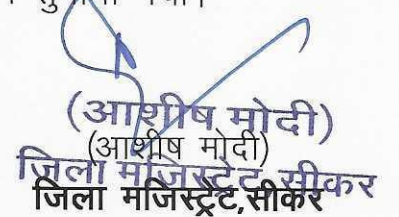 (आशीष मोदी)
(आशीष मोदी)
जिला मजिस्ट्रेट, सीकर
जिला मजिस्ट्रेट,सीकर